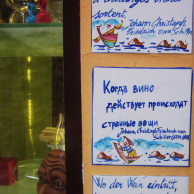 sortent,
Johann Christoph
Friedrich von Schiller
Когда вино
действует происходят
странные вещи
Johann Christoph Friedrich von
Schiller
Wo der Wein eintritt,